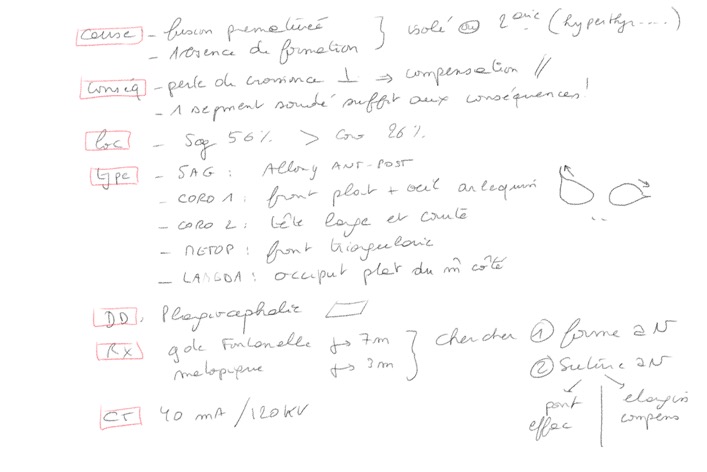 cause - fusion prématurée } isolé ou 2 aire (hyperthyr....)
- absence de formation
Conséq - perte de croissance ⊥ ⇒ compensation //
- 1 segment soudé suffit aux conséquences!
loc - Sag 56% > Coro 26%
type - SAG : Allong ANT-POST
- CORO 1 : front plat + oeil arlequin
- CORO 2 : tête large et courte
- METOP : front triangulaire
- LAMBDA : occiput plat du m̂ côté
DD. Plagiocephalie
Rx gde Fontanelle → 7m } chercher ① forme aN
metopique → 3m ② Suture aN
pont effac | elargiss compens
CT 40 mA / 120 KV